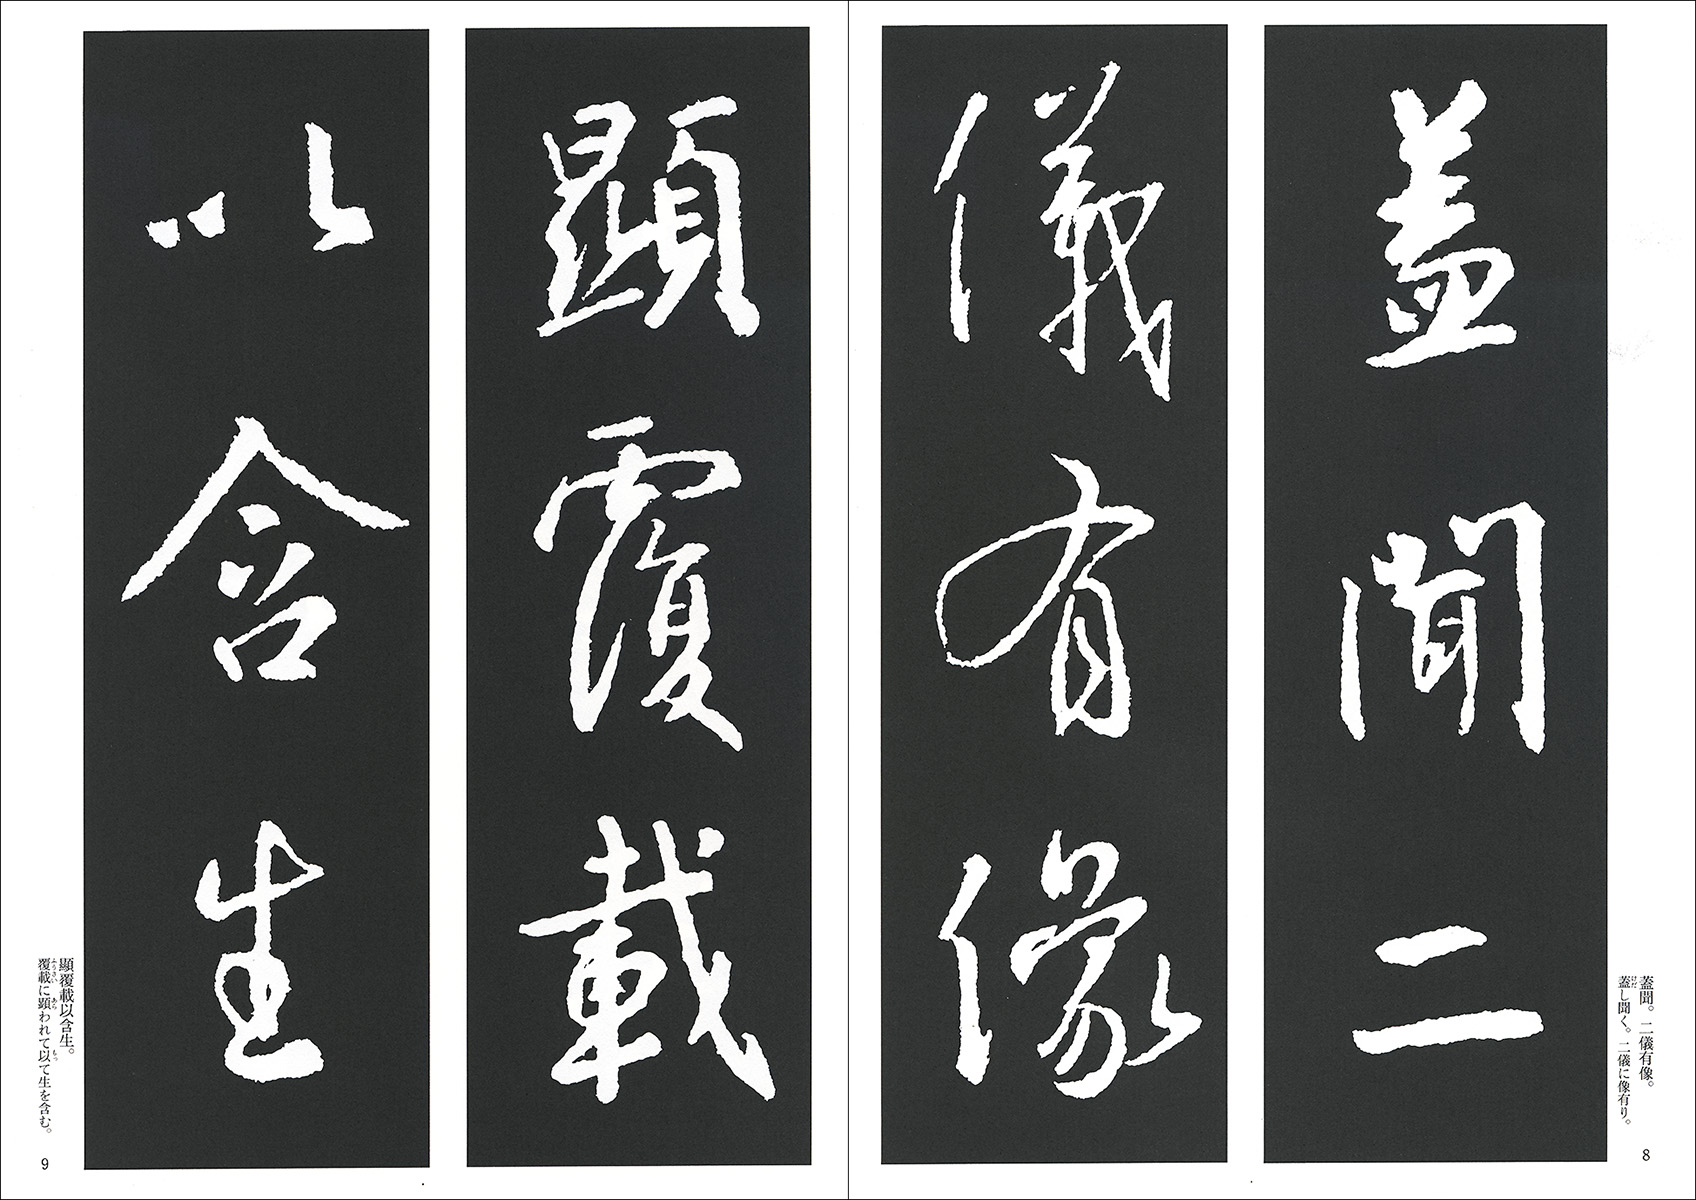 蓋聞二
儀有像
蓋聞。二儀有像。
蓋し聞く。二儀に像有り。
けだ
8
顯覆載
以含生
顯覆載以含生。
覆載に顕われて以て生を含む。
ふうさい あら もっ
9